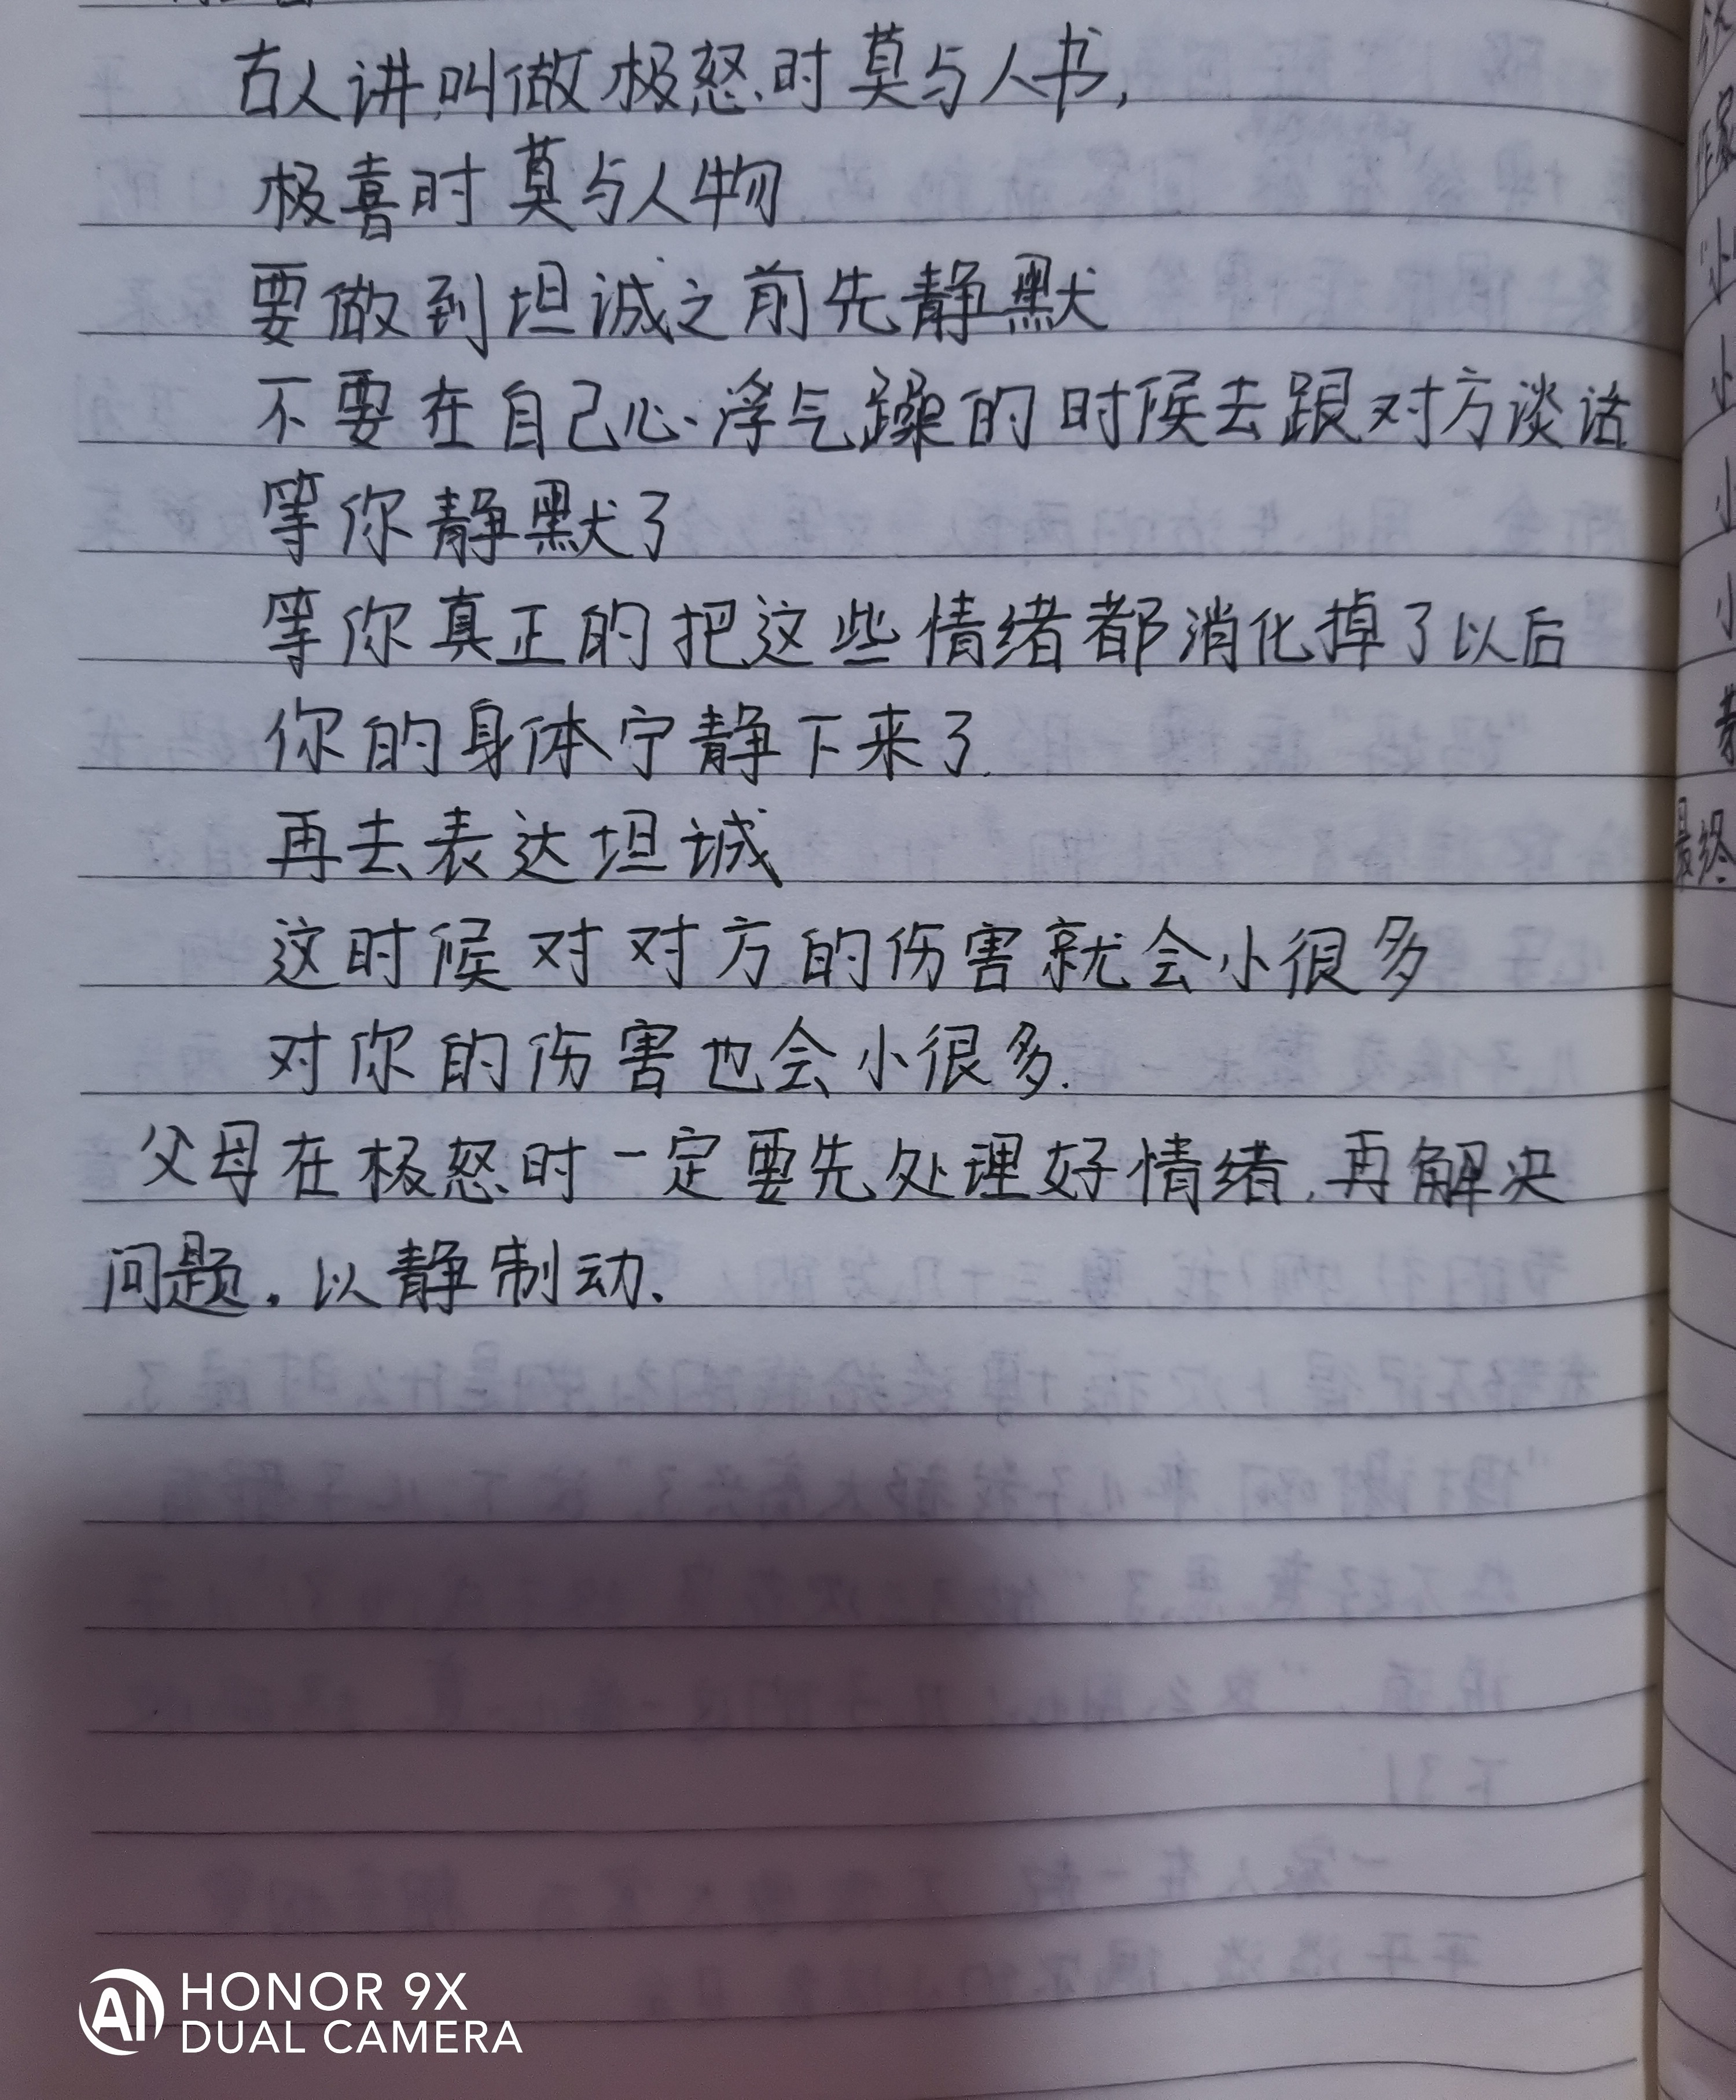 古人讲,叫做极怒时莫与人书,
极喜时莫与人物
要做到坦诚之前先静默
不要在自己心浮气躁的时候去跟对方谈话
等你静默了
等你真正的把这些情绪都消化掉了以后
你的身体宁静下来了.
再去表达坦诚
这时候对对方的伤害就会小很多
对你的伤害也会小很多.
父母在极怒时一定要先处理好情绪,再解决
问题.以静制动.
最终
HONOR 9X
DUAL CAMERA